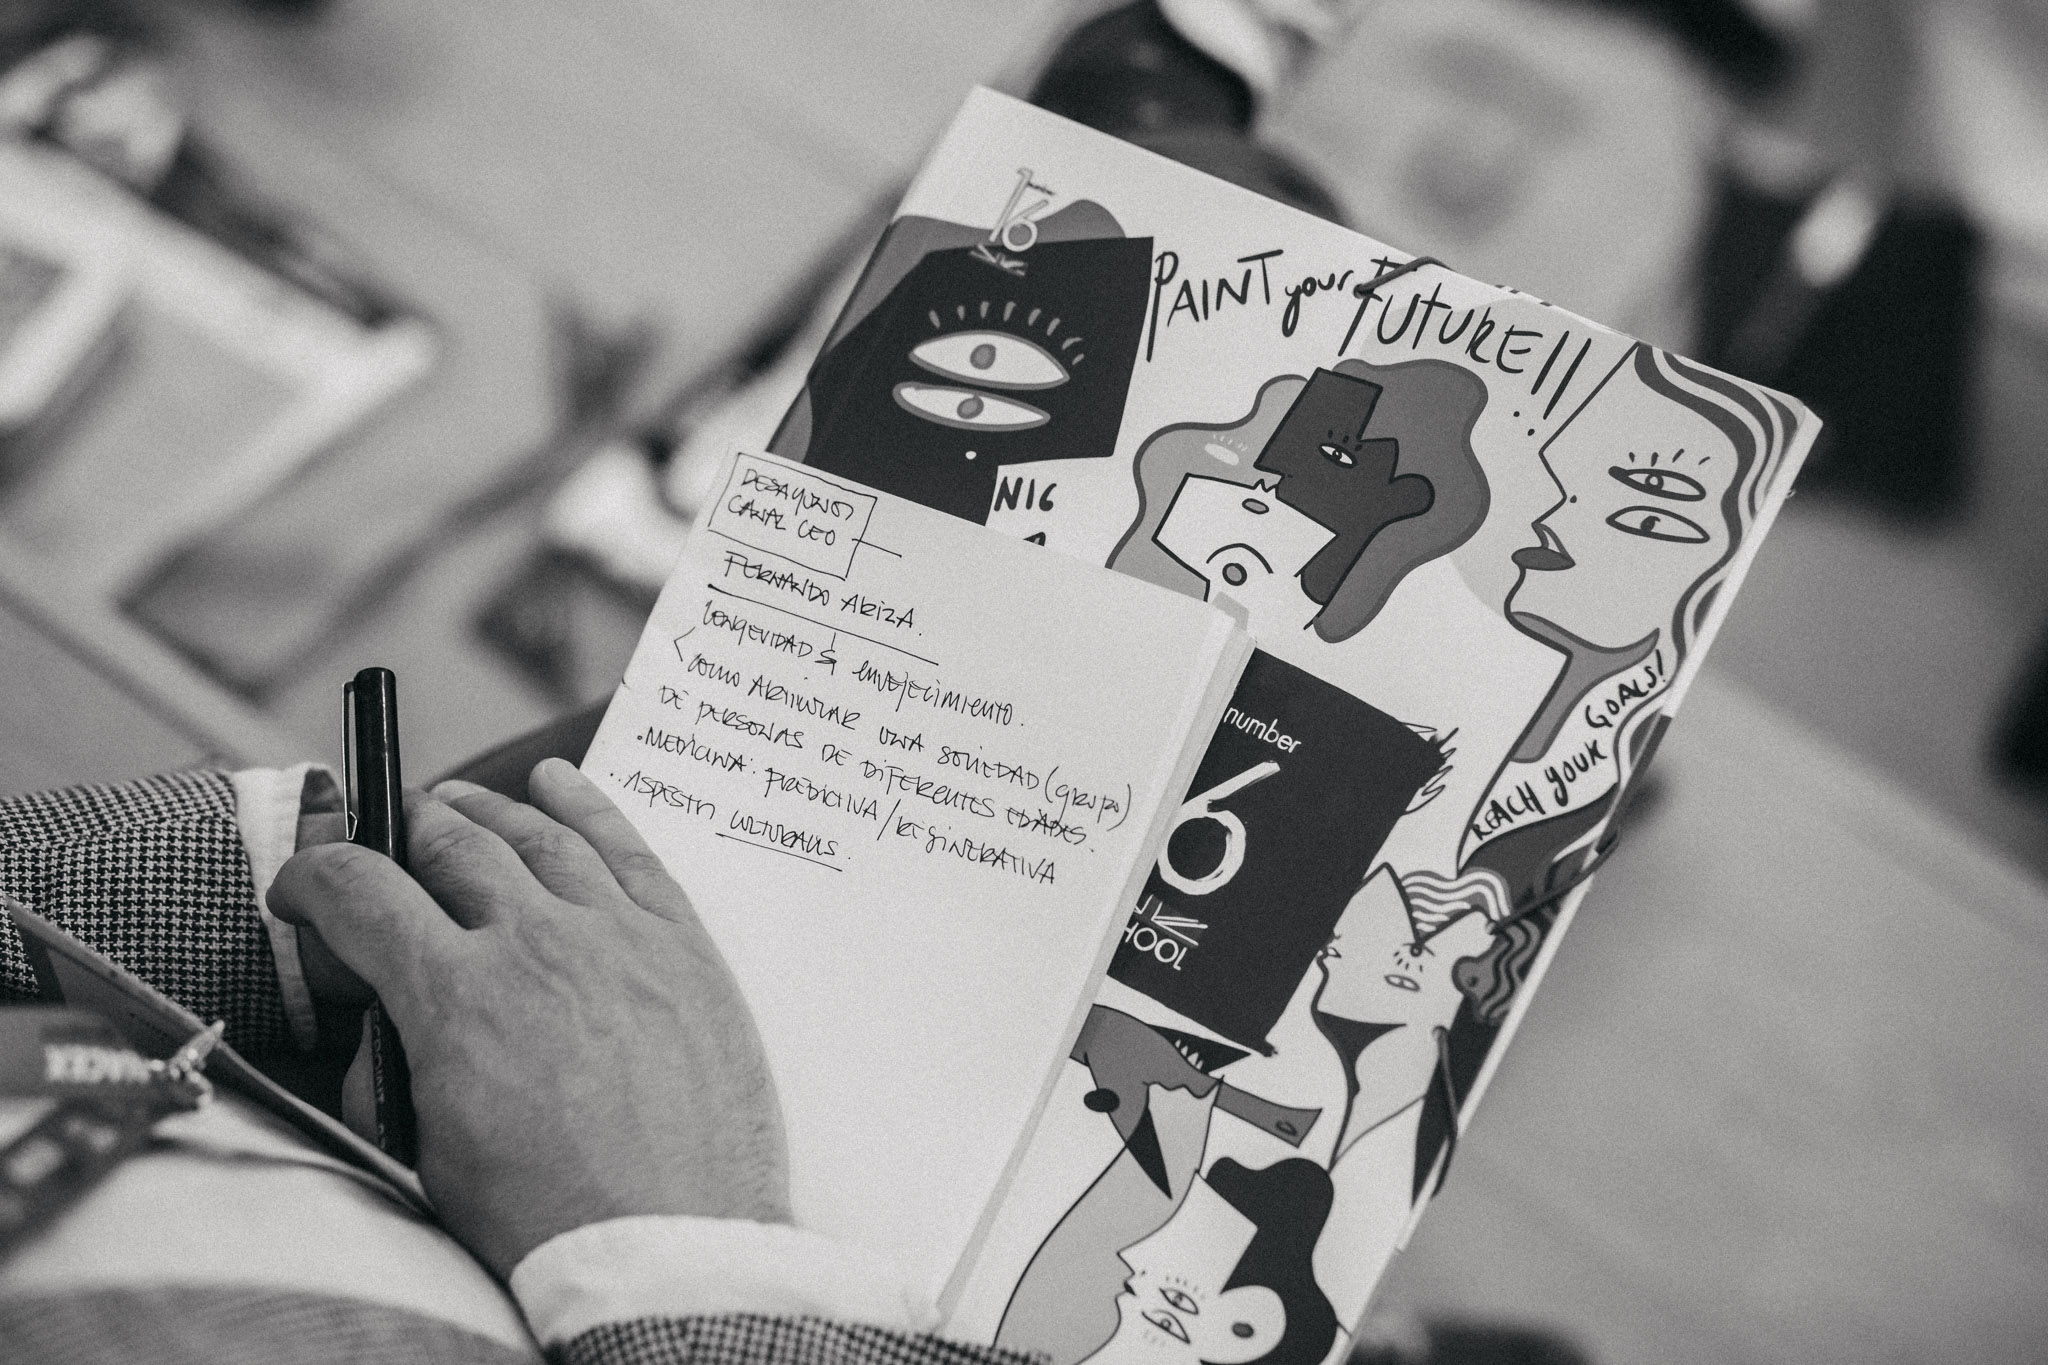 16
PAINT your FUTURE!!
NIC
DESAYUNOS
CANAL CEO
FERNANDO ARIZA.
LONGEVIDAD & ENVEJECIMIENTO.
COMO ARTICULAR UNA SOCIEDAD (GRUPO)
DE PERSONAS DE DIFERENTES EDADES.
. MEDICINA: PREDICTIVA / REGENERATIVA
.. ASPESTOS CULTURALES.
number
6
HOOL
REACH YOUR GOALS!